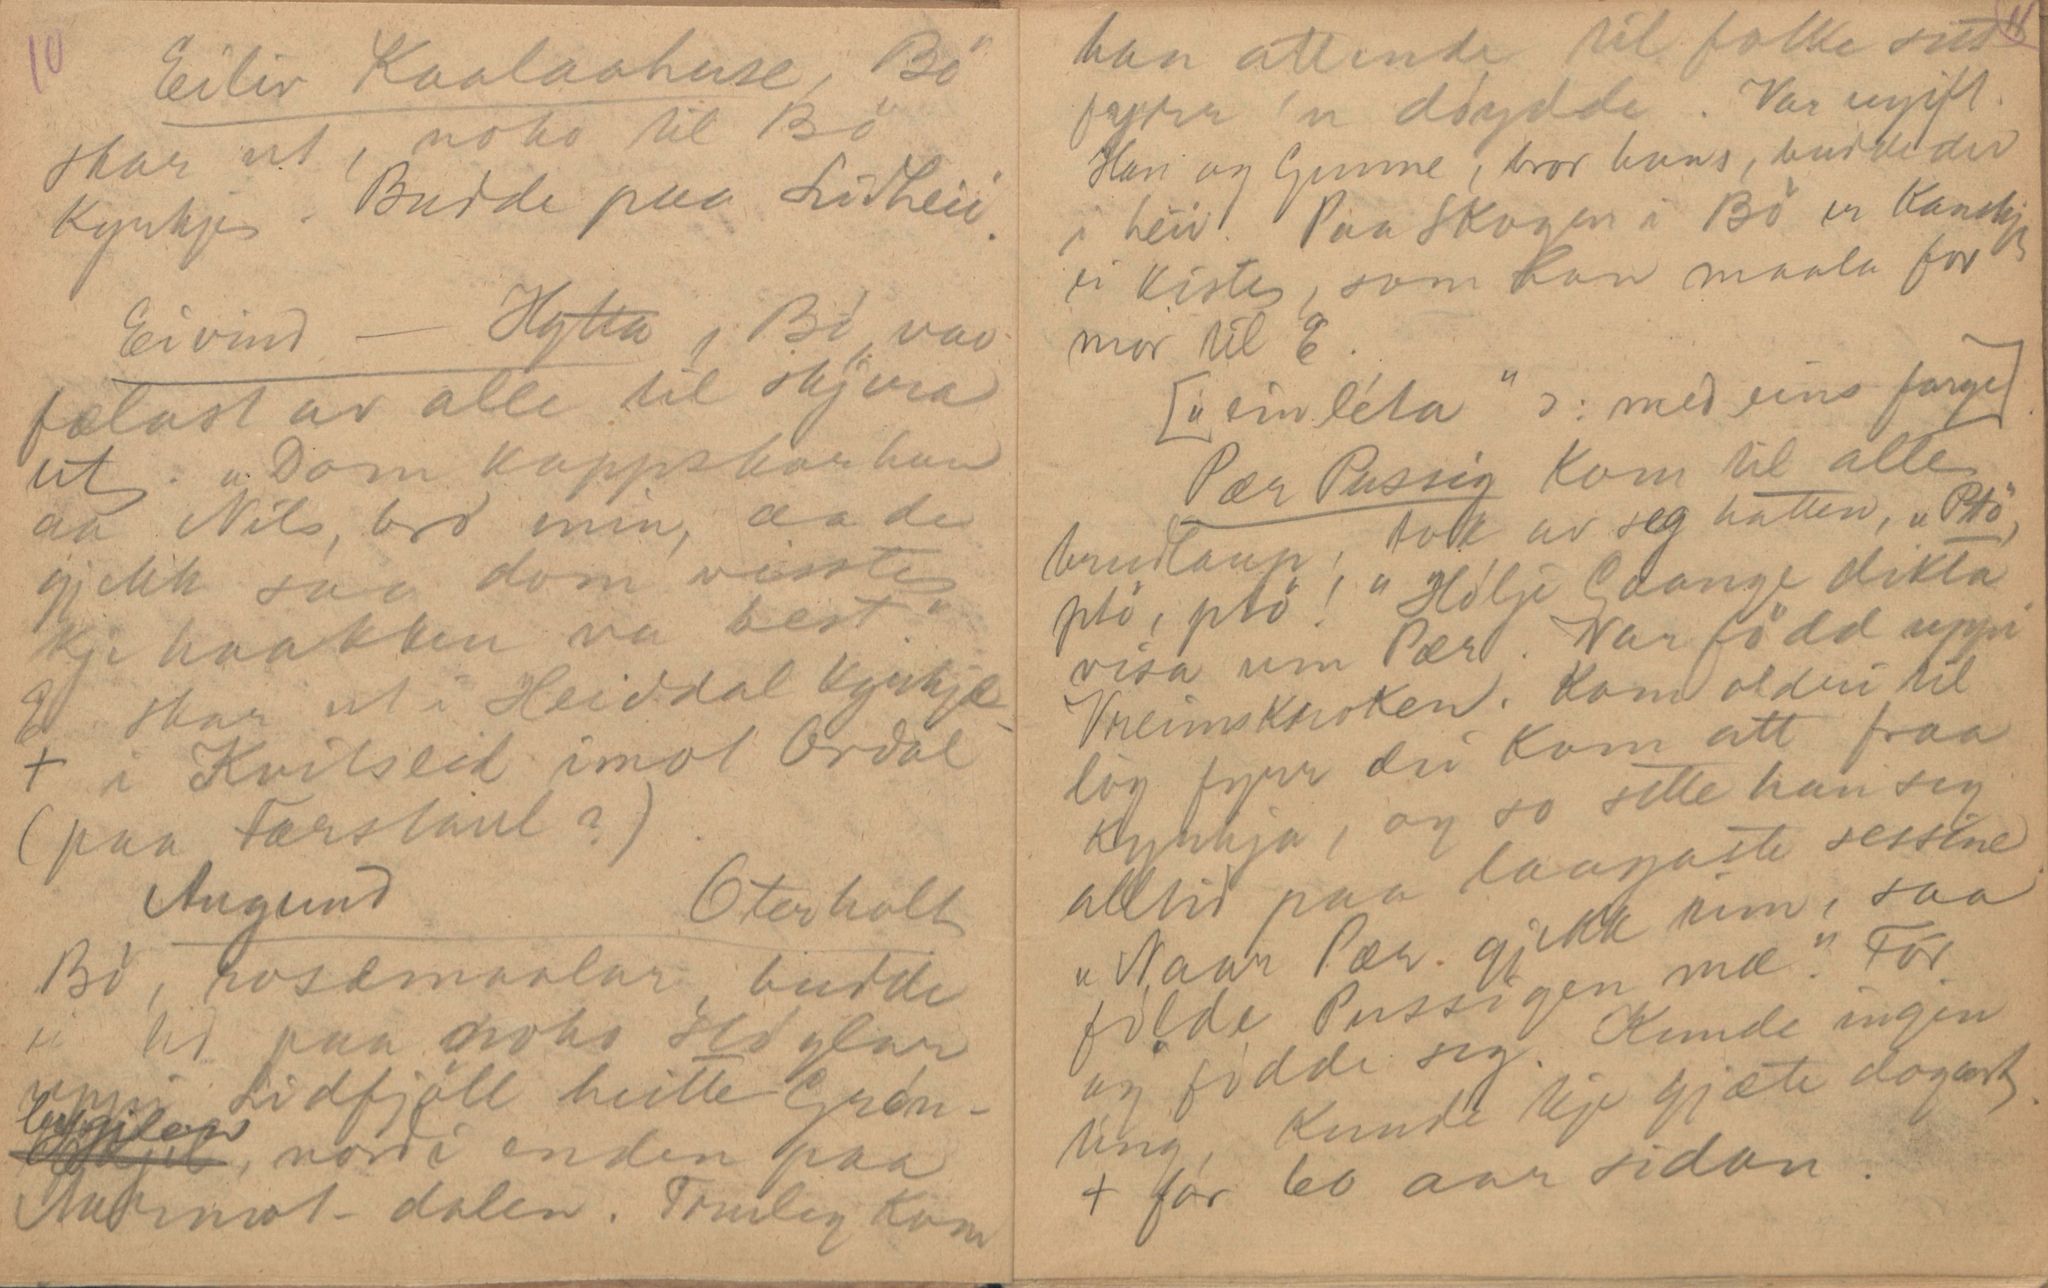 10
Eiliv Kaalaahuse, Bö
skar ut, noko til Bö
Kyrkje. Budde paa Lidheii.
Eivind — Hytta, Bö, vao
fælast av alle til skjæra
ut. „Dom kappskar han
aa Nils, bro min, aa de
gjekk saa dom visste
kje haakken va best."
E. skar ut i Heiddal Kyrkje
+ i Kvitseid imot Ordal
(paa Færstaul?)
Augund Oterholt
Bö, rosemaalar, budde
ei tid paa noko Höglar
uppi Lidfjöll heitte Grön-
bygilen, nordi enden paa
Aurmot-dalen. Truleg kom
11
han attende til folke sitt
fyrr 'n döydde. Var ugift.
Han og Gunne, bror hans, budde der
i heii. Paa Skogen i Bö er Kanskje
ei kiste, som han maala for
mor til E.
[„einléta" ɔ: med eins farge].
Pær Pussig kom til alle
brudlaup, tok av seg hatten, „Ptö,
ptö, ptö!" Hölje Gaange dikta
visa um Pær. Var född uppi
Vreimskroken. Kom aldri til
lög fyrr dei kom att fraa
kyrkja, og so sette han seg
alltid paa laagaste sessine
„Naar Pær gjekk inn, saa
földe Pussigen mæ". For
og födde seg. Kunde ingen
ting, kunde kje gjæte dogart.
+ för 60 aar sidan.